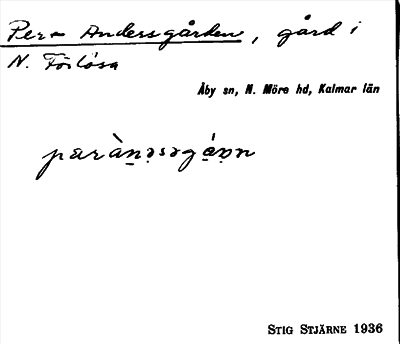 Per Andersgården, gård i
N. Förlösa
Åby sn, N. Möre hd, Kalmar län
STIG STJÄRNE 1936